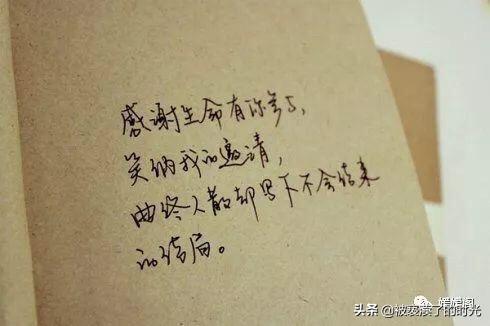 感谢生命有你参与，
笑纳我的邀请，
曲终人散却写下不会结束
的结局。
头条 @被爱浸了的时光